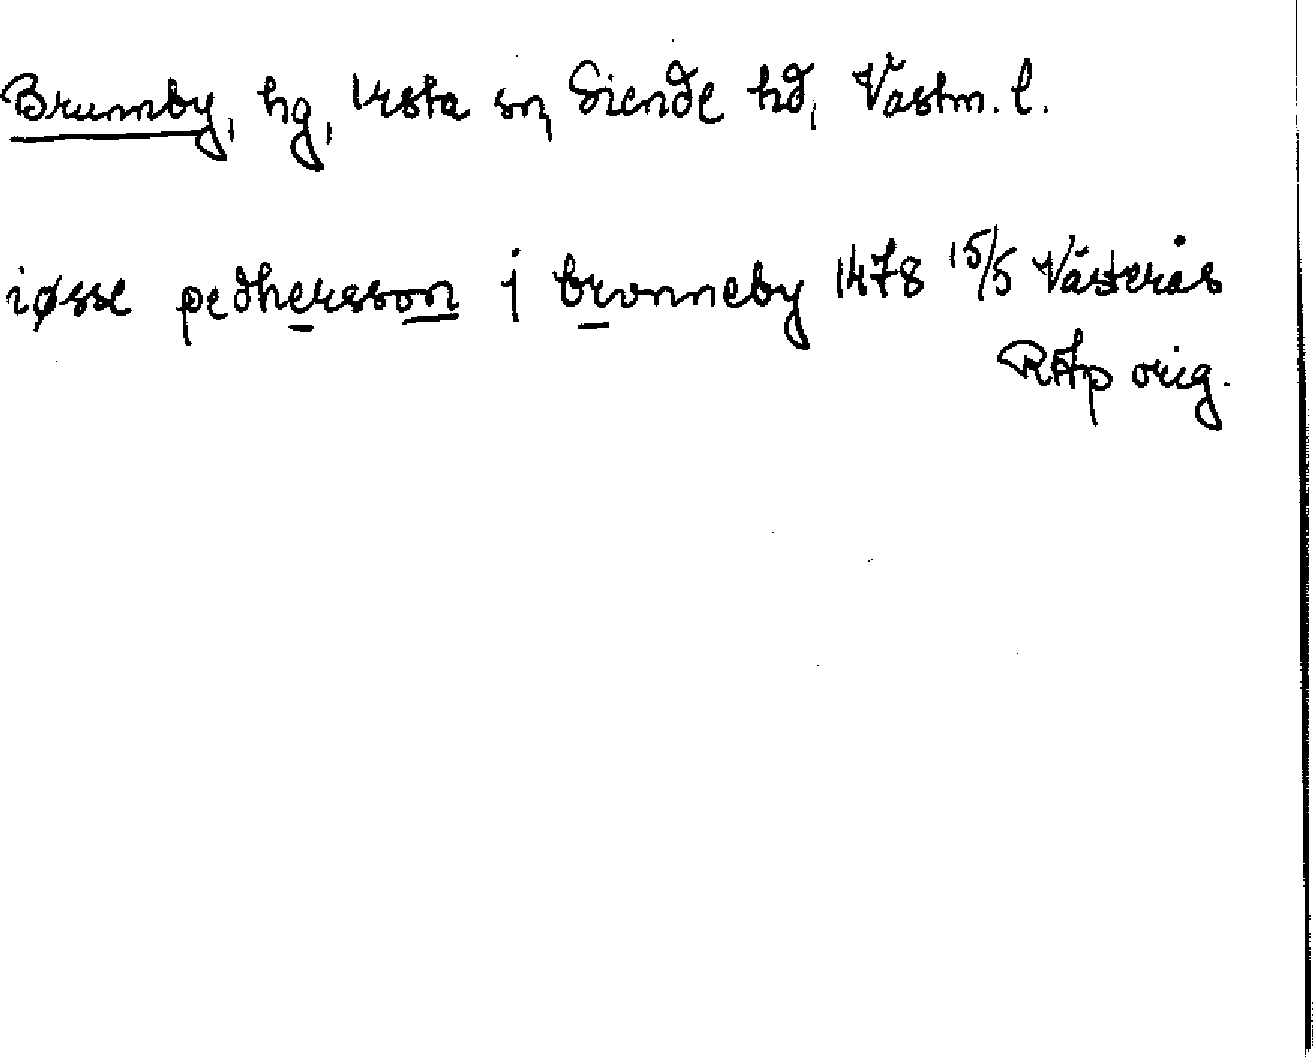 Brumby, hg, Irsta sn, Siende hd, Västm. l.
iøsse pedhersson j bronneby 1478 15/5 Västerås
RAp orig.